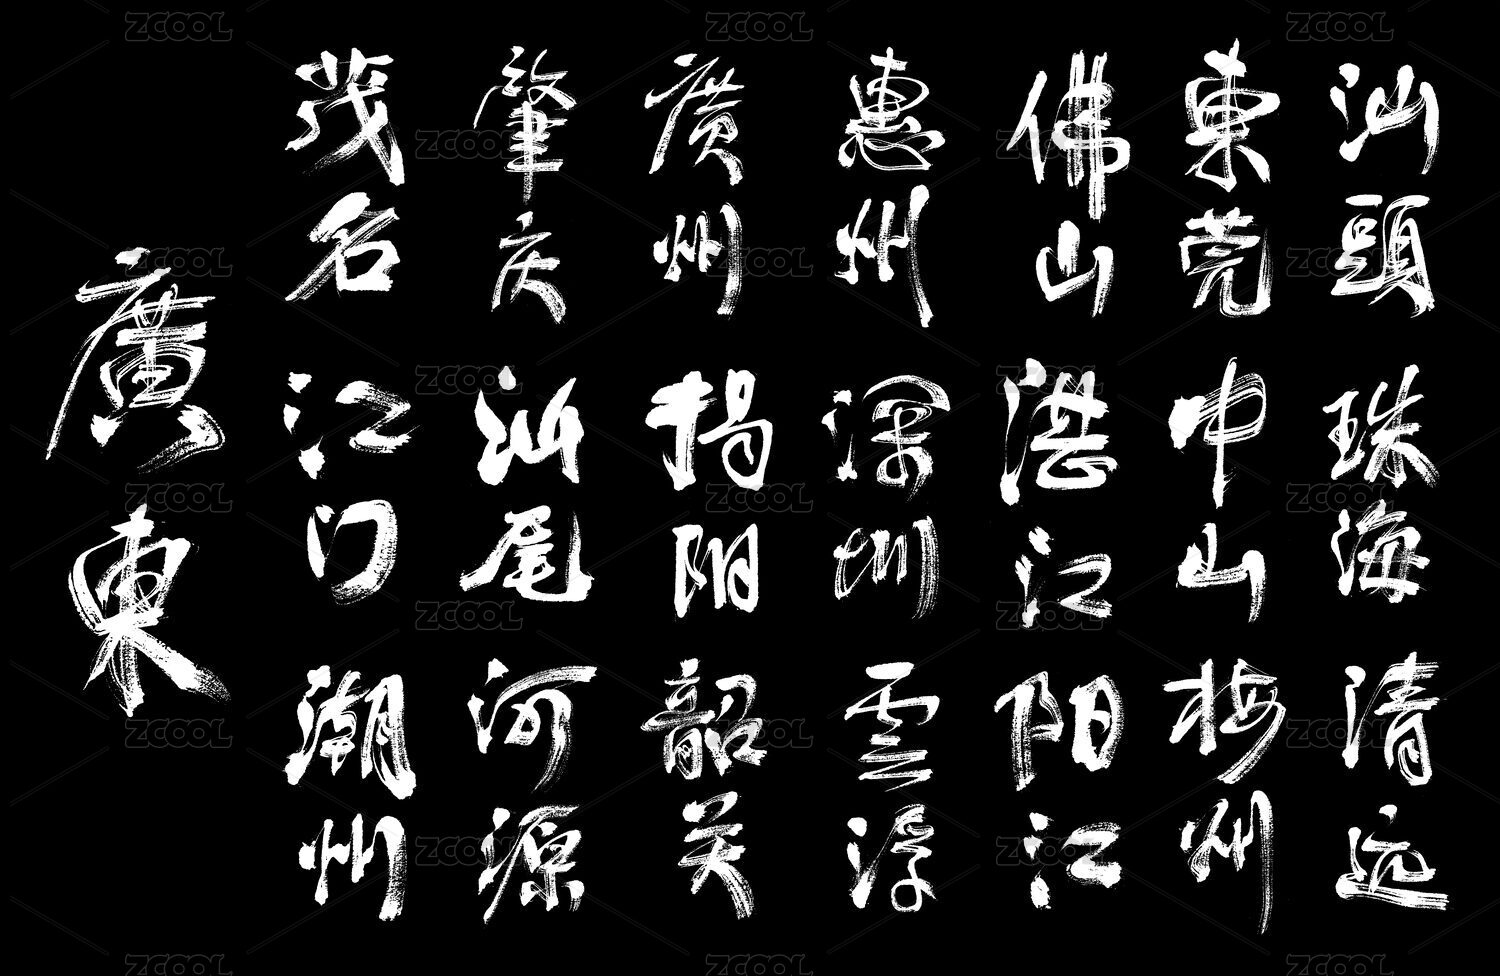 廣東
茂名
肇庆
廣州
惠州
佛山
東莞
汕頭
江门
汕尾
揭阳
深圳
湛江
中山
珠海
潮州
河源
韶关
雲浮
阳江
梅州
清远
ZCOOL